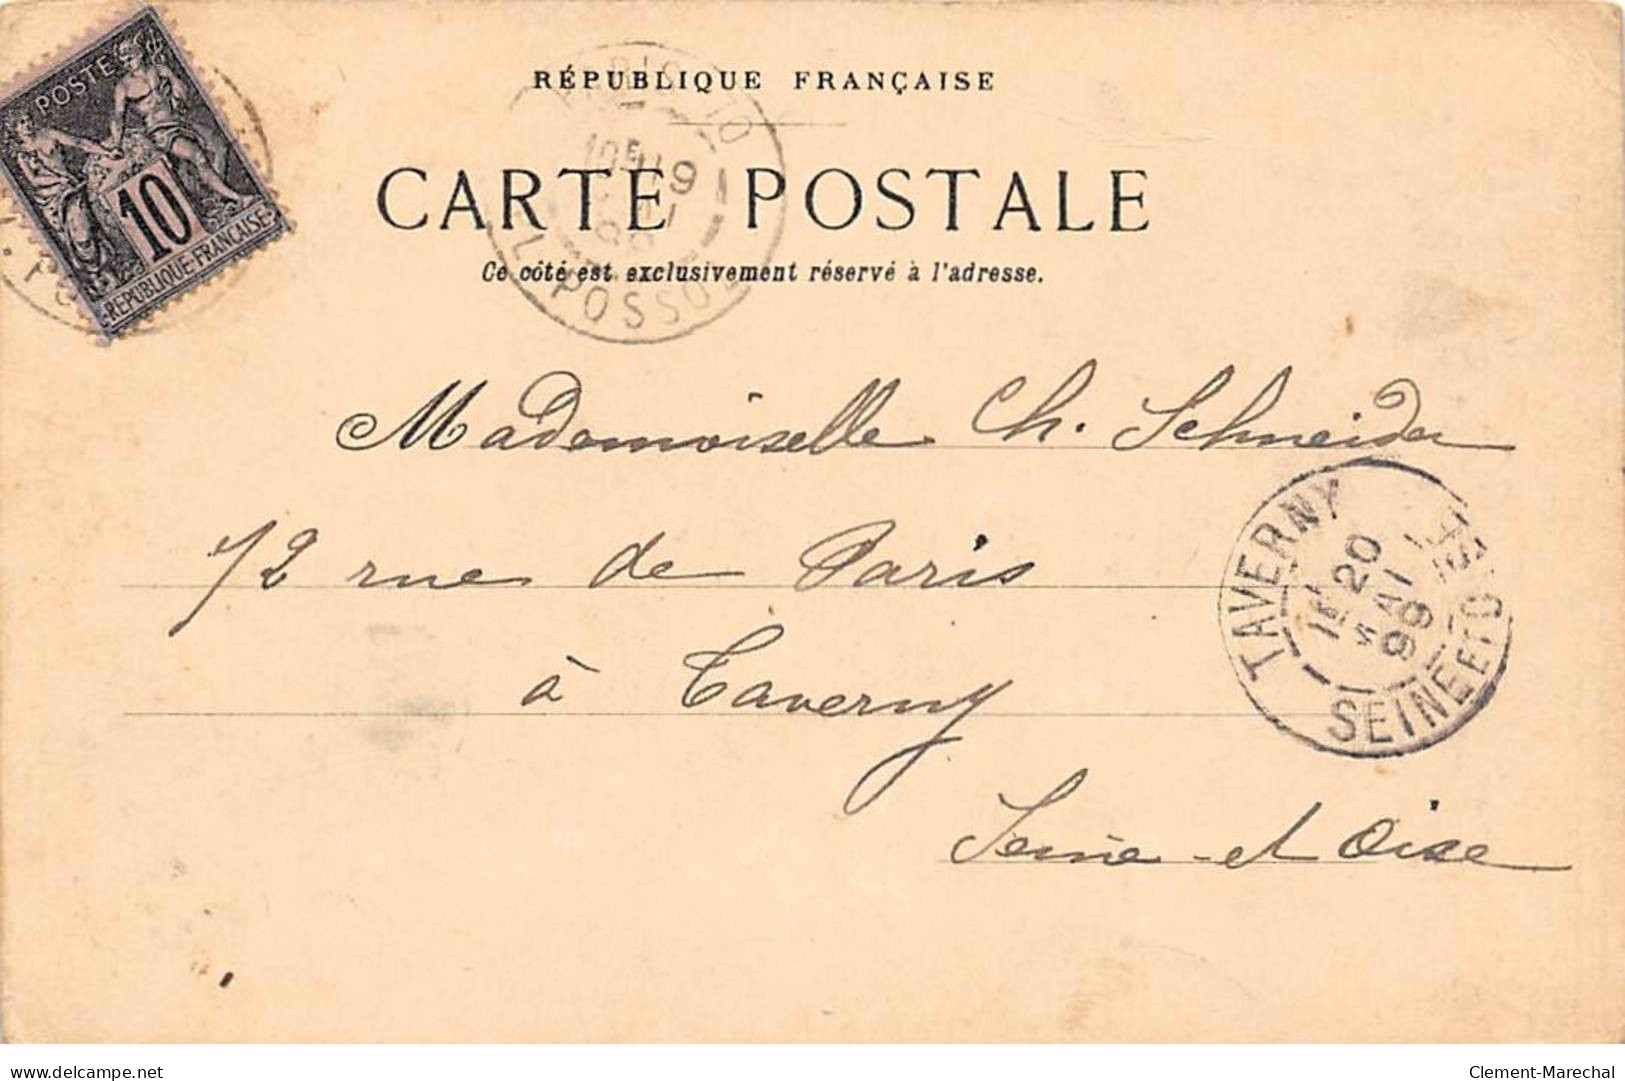 RÉPUBLIQUE FRANÇAISE
CARTE POSTALE
Ce côté est exclusivement réservé à l'adresse.
POSTES
10
REPUBLIQUE FRANÇAISE
Mademoiselle Ch. Schneider
72 rue de Paris
à Taverny
Seine et Oise
TAVERNY
20
MAI
99
SEINE ET OISE
delcampe.net
Clement-Marechal